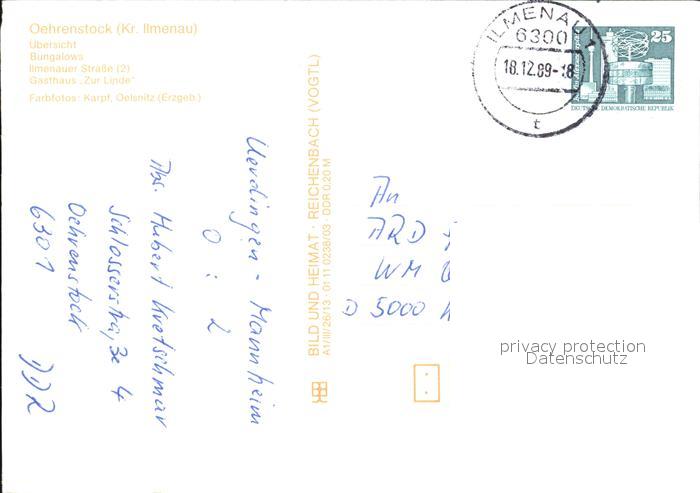 Oehrenstock (Kr. Ilmenau)
Übersicht
Bungalows
Ilmenauer Straße (2)
Gasthaus „Zur Linde"
Farbfotos: Karpf, Oelsnitz (Erzgeb.)
ILMENAU 1
6300
18.12.89-18
t
25
DEUTSCHE DEMOKRATISCHE REPUBLIK
BILD UND HEIMAT · REICHENBACH (VOGTL)
A1/III/26/13 · 01 11 0238/03 · DDR 0,20 M
Uerdingen - Mannheim
0 : 2
Abs. Hubert Kretschmar
Schlosserstraße 4
Oehrenstock
6301
DDR
An
ARD
WM
D 5000
privacy protection
Datenschutz